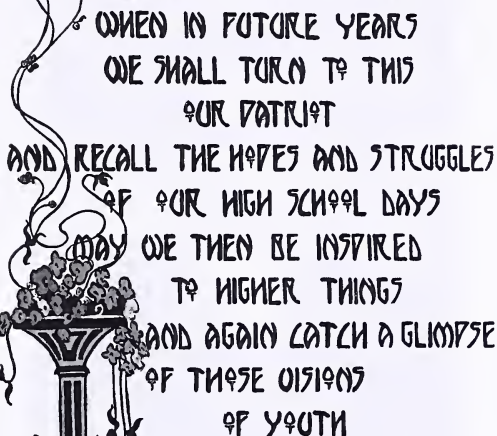 WHEN IN FUTURE YEARS
WE SHALL TURN TO THIS
OUR PATRIOT
AND RECALL THE HOPES AND STRUGGLES
OF OUR HIGH SCHOOL DAYS
MAY WE THEN BE INSPIRED
TO HIGHER THINGS
AND AGAIN CATCH A GLIMPSE
OF THOSE VISIONS
OF YOUTH